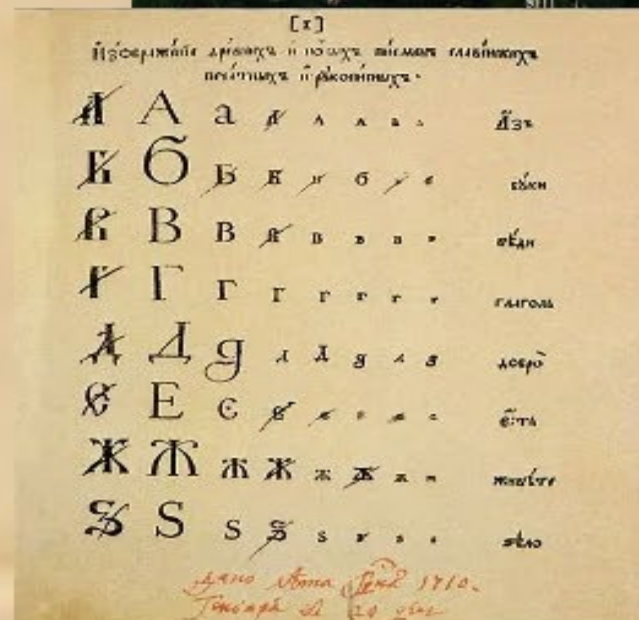 [ї]
Изѡбраженїе древнихъ и новыхъ писменъ славенскихъ
печатныхъ и рꙋкописныхъ.
А А а а а а а а Азъ
Б Б Б Б Б б Б б бꙋки
В В В В В в в в вѣди
Г Г Г г г г г г глаголь
Д Д д д Д д д д добро
Є Е Є є є є є є есть
Ж Ж Ж Ж ж ж ж ж живѣте
Ѕ Ѕ ѕ Ѕ ѕ ѕ ѕ ѕ ѕѣло
дано лѣта 1710.
Генваря 29